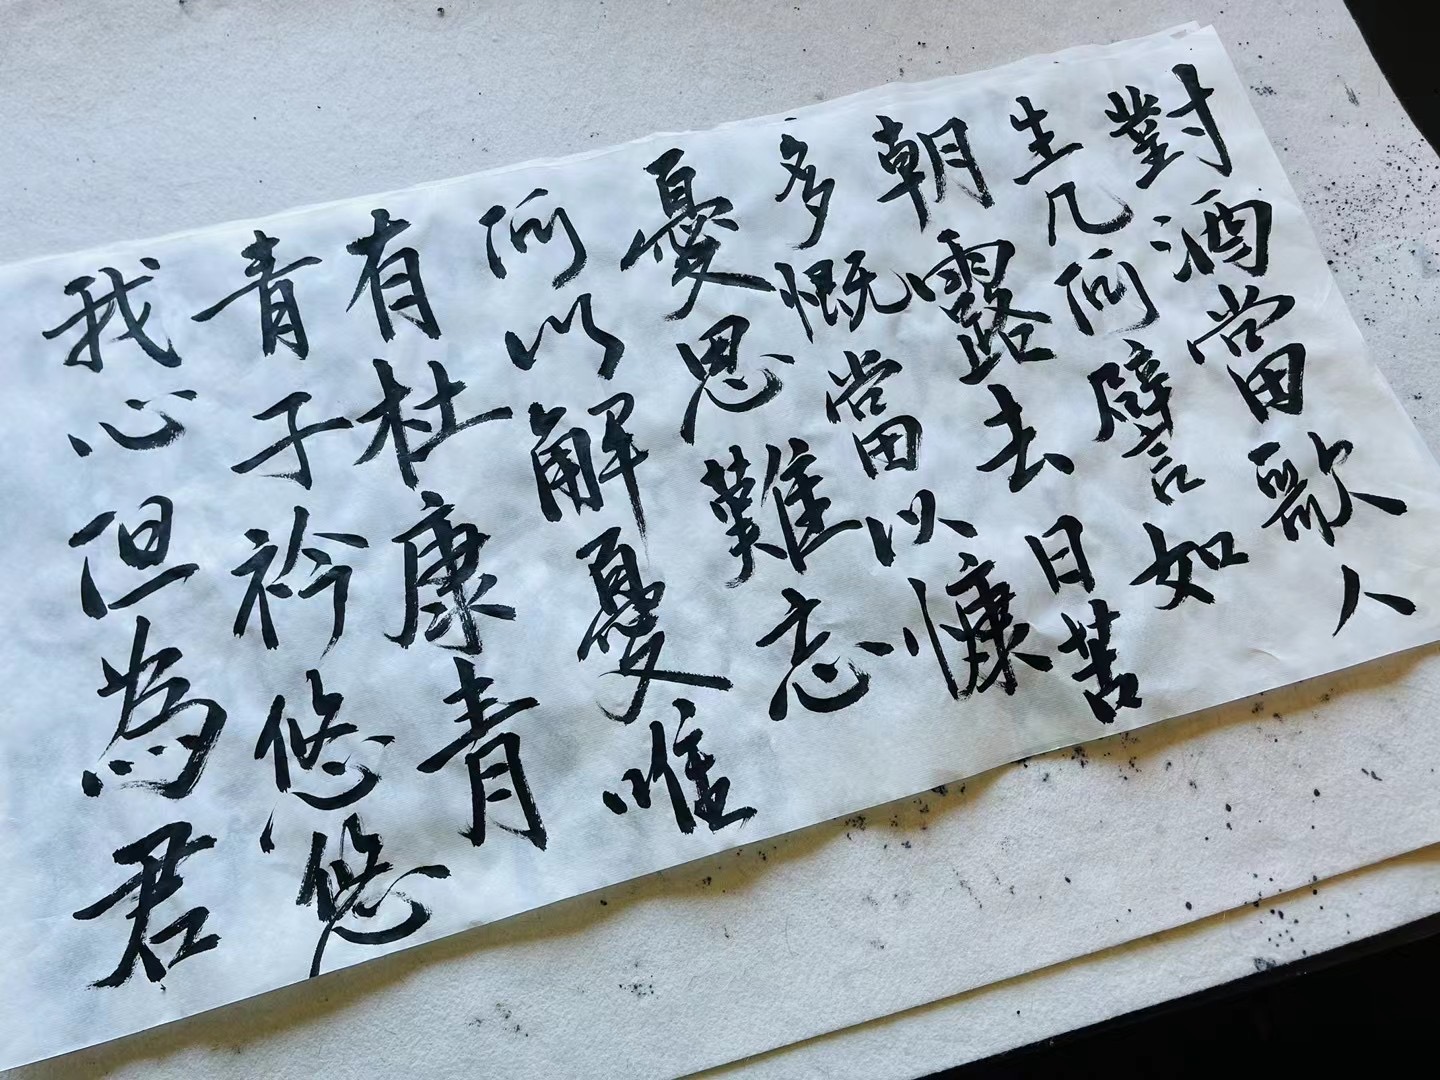 對酒當歌人
生几何譬如
朝露去日苦
多慨當以慷
憂思難忘
何以解憂唯
有杜康青
青子衿悠悠
我心但為君